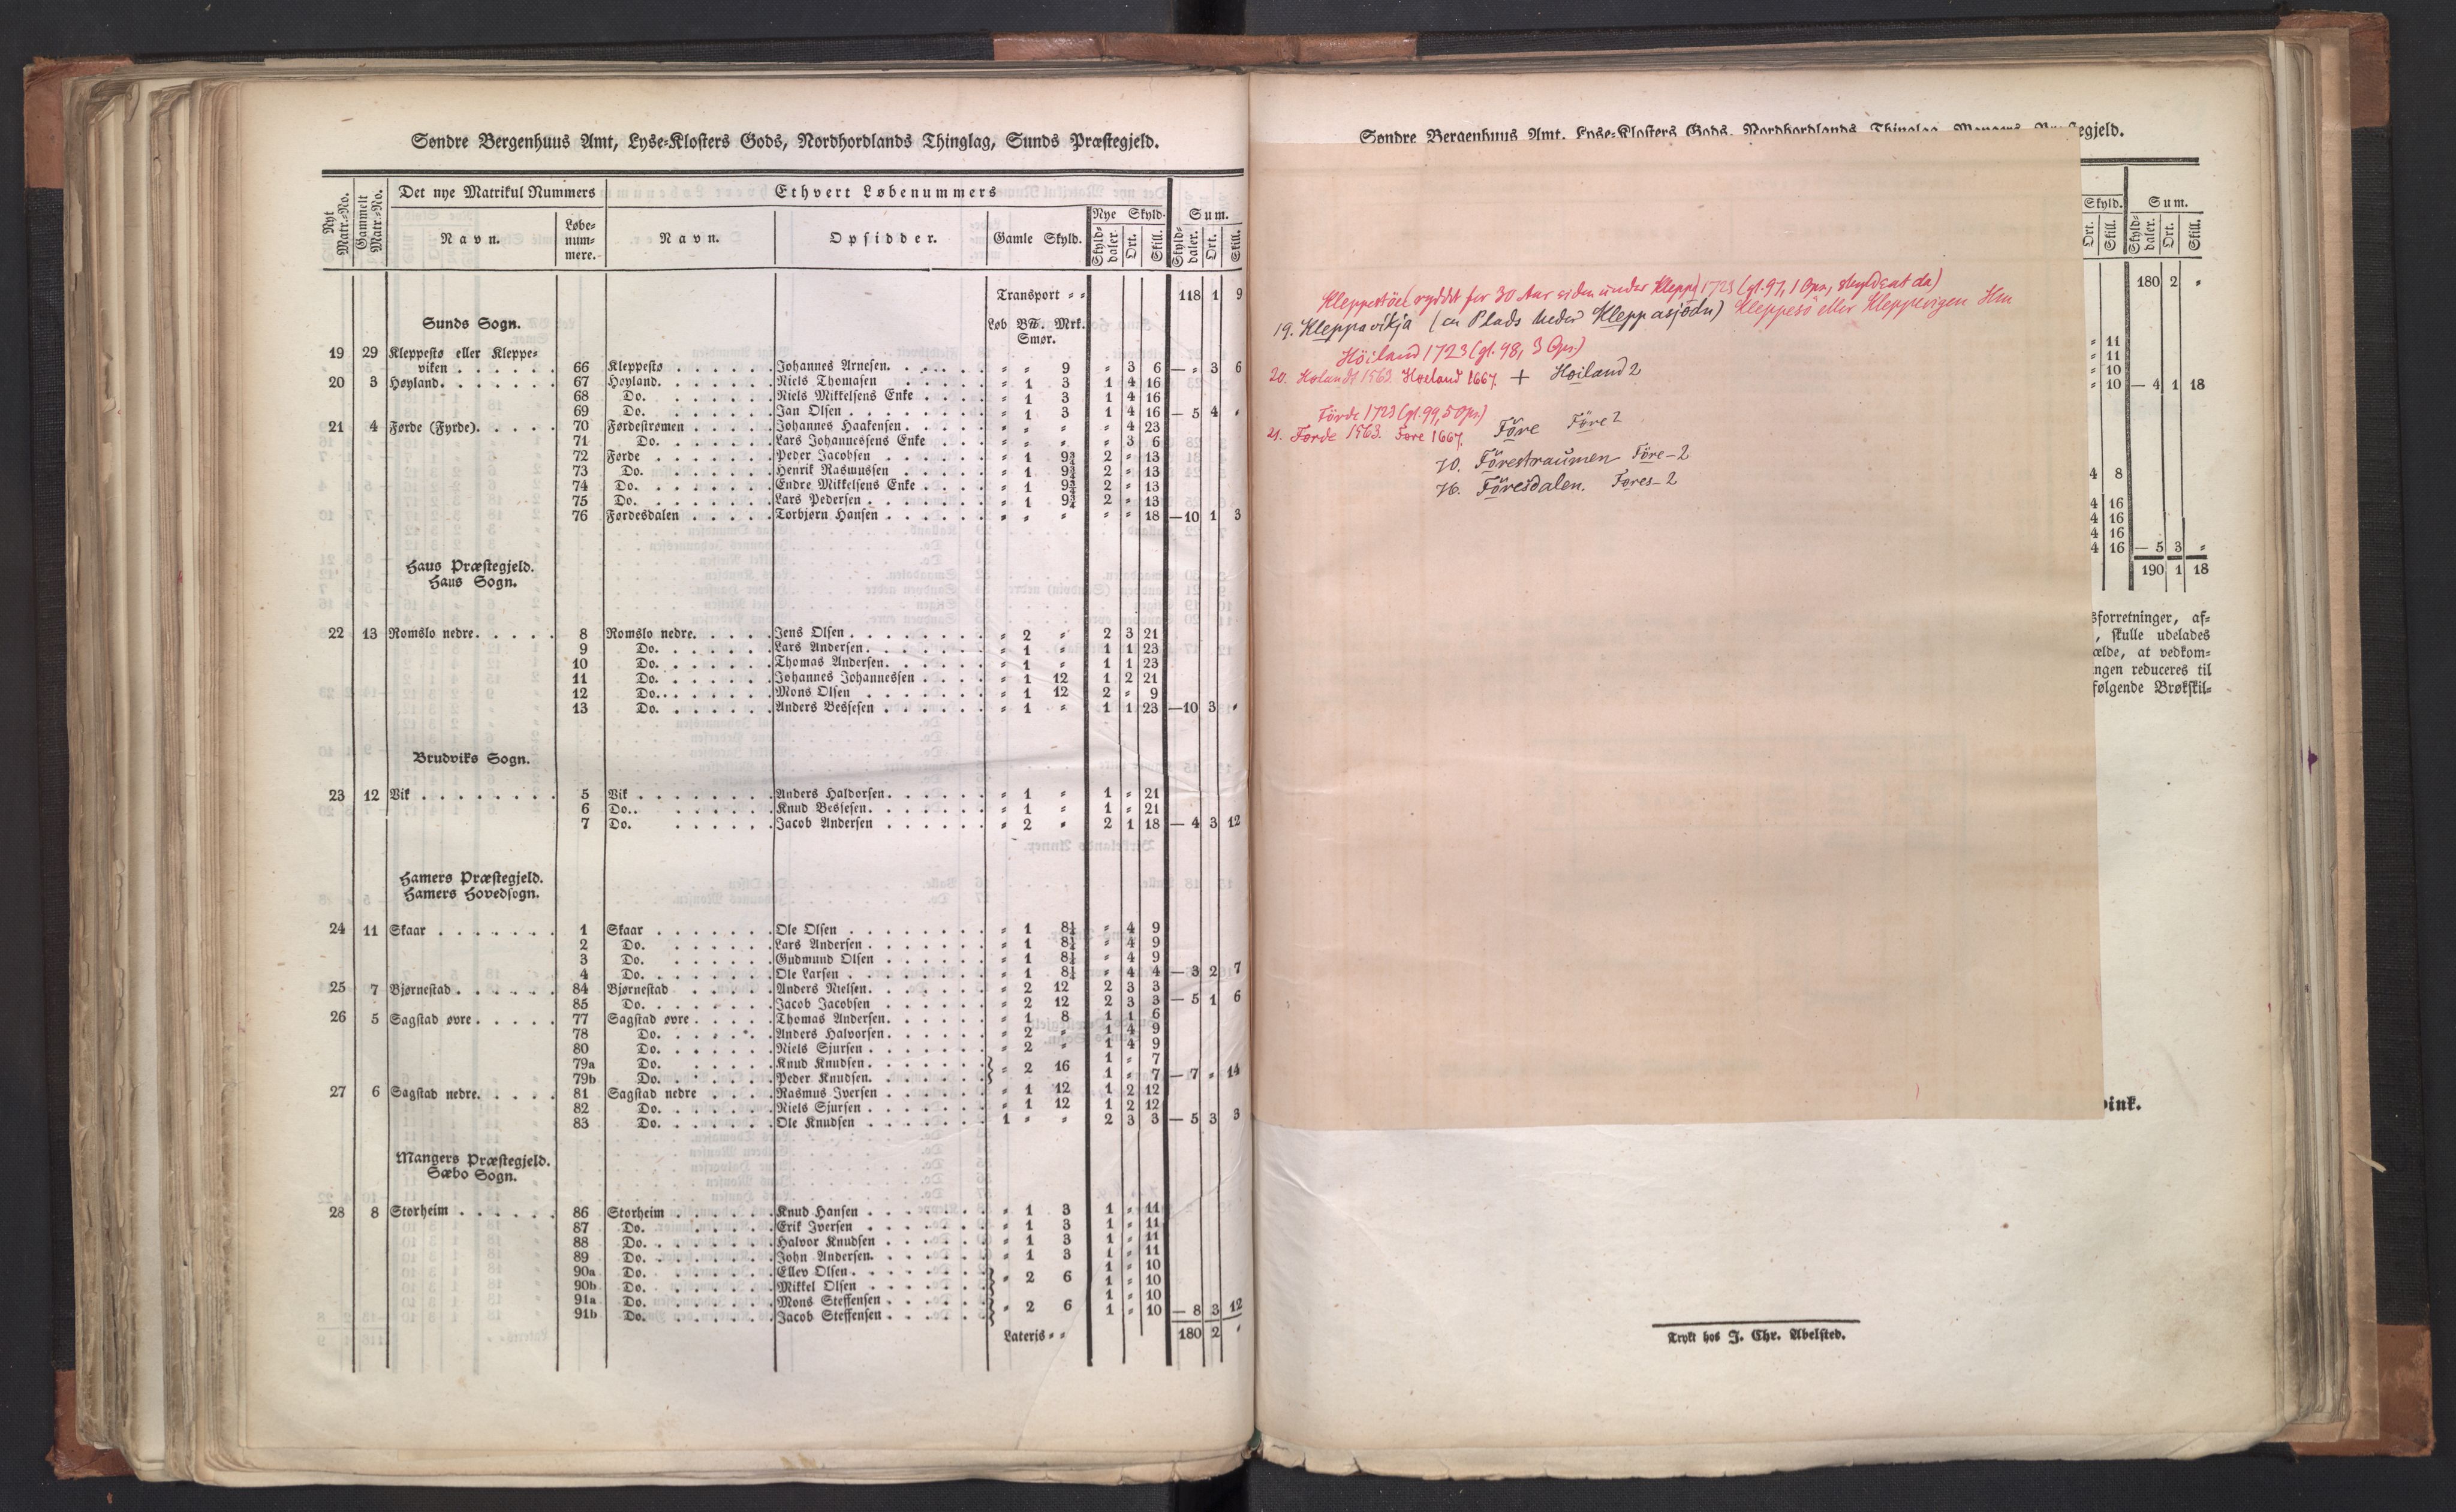 Søndre Bergenhuus Amt, Lyse-Klosters Gods, Nordhordlands Thinglag, Sunds Præstegjeld.
Nyt Matr.-No. Gammelt Matr.-No. Det nye Matrikul Nummers Ethvert Løbenummers
Navn. Løbe-num-mere. Navn. Opsidder. Gamle Skyld. Nye Skyld. Sum.
Skyld-daler. Ort. Skill. Skyld-daler. Ort. Skill.
Transport 118 1 9
Sunds Sogn. Løb B℔. Mrk.
Smør.
19 29 Kleppestø eller Kleppe-
viken 66 Kleppestø Johannes Arnesen. " " 9 " 3 6 — " 3 6
20 3 Høyland. 67 Høyland. Niels Thomasen " 1 3 1 4 16
68 Do. Niels Mikkelsens Enke " 1 3 1 4 16
69 Do. Jan Olsen " 1 3 1 4 16 — 5 4 "
21 4 Førde (Fyrde). 70 Førdestrømen Johannes Haakensen. " " " " 4 23
71 Do. Lars Johannessens Enke " " " " 3 6
72 Førde Peder Jacobsen " 1 9¾ 2 " 13
73 Do. Henrik Rasmussen " 1 9¾ 2 " 13
74 Do. Endre Mikkelsens Enke " 1 9¾ 2 " 13
75 Do. Lars Pedersen " 1 9¾ 2 " 13
76 Førdesdalen Torbjørn Hansen " " " " " 18 — 10 1 3
Haus Præstegjeld.
Haus Sogn.
22 13 Romslo nedre. 8 Romslo nedre. Jens Olsen " 2 " 2 3 21
9 Do. Lars Andersen. " 1 " 1 1 23
10 Do. Thomas Andersen. " 1 " 1 1 23
11 Do. Johannes Johannessen " 1 12 1 2 21
12 Do. Mons Olsen " 1 12 2 " 9
13 Do. Anders Bessesen " 1 " 1 1 23 — 10 3 "
Brudviks Sogn.
23 12 Vik 5 Vik Anders Haldorsen. " 1 " 1 " 21
6 Do. Knud Bessesen. " 1 " 1 " 21
7 Do. Jacob Andersen " 2 " 2 1 18 — 4 3 12
Hamers Præstegjeld.
Hamers Hovedsogn.
24 11 Skaar 1 Skaar Ole Olsen " 1 8¼ " 4 9
2 Do. Lars Andersen " 1 8¼ " 4 9
3 Do. Gudmund Olsen " 1 8¼ " 4 9
4 Do. Ole Larsen " 1 8¼ " 4 4 — 3 2 7
25 7 Bjørnestad 84 Bjørnestad Anders Nielsen. " 2 12 2 3 3
85 Do. Jacob Jacobsen " 2 12 2 3 3 — 5 1 6
26 5 Sagstad øvre 77 Sagstad øvre Thomas Andersen. " 1 8 1 1 6
78 Do. Anders Halvorsen. " 2 " 1 4 9
80 Do. Niels Sjursen " 2 " 1 4 9
79a Do. Knud Knudsen 1 " 7
79b Do. Peder Knudsen. " 2 16 1 " 7 — 7 " 14
27 6 Sagstad nedre. 81 Sagstad nedre Rasmus Iversen " 1 12 1 2 12
82 Do. Niels Sjursen " 1 12 1 2 12
83 Do. Ole Knudsen 1 " " 2 3 3 — 5 3 3
Mangers Præstegjeld.
Sæbo Sogn.
28 8 Storheim 86 Storheim Knud Hansen " 1 3 1 " 11
87 Do. Erik Iversen " 1 3 1 " 11
88 Do. Halvor Knudsen " 1 3 1 " 11
89 Do. John Andersen. " 1 3 1 " 11
90a Do. Ellev Olsen 1 " 10
90b Do. Mikkel Olsen " 2 6 1 " 10
91a Do. Mons Steffensen 1 " 10
91b Do. Jacob Steffensen " 2 6 1 " 10 — 8 3 12
Lateris 180 2 "
Søndre Bergenhuus Amt, Lyse-Klosters Gods, Nordhordlands Thinglag, Mangers Præstegjeld.
Skyld. Sum.
Ort. Skill. Skyld-daler. Ort. Skill.
180 2 "
" 11
" 11
" 10
" 10 — 4 1 18
4 8
4 16
4 16
4 16
4 16 — 5 3 "
190 1 18
Kleppestöe ryddet for 30 Aar siden under Klepp 1723 (gl. 97, 1 Ops, skyldsat da)
19. Kleppavikja (en Plads heder Kleppasjödn) Kleppesö eller Kleppevigen Hm
Höiland 1723 (gl. 98, 3 Ops.)
20. Holandt 1563. Hoeland 1667. + Höiland 2
Förde 1723 (gl. 99, 5 Ops.)
21. Forde 1563.Føre 1667. Före Före 2
70. Förestraumen Före- 2
76. Föresdalen. Føres- 2
sforretninger, af-
, skulle udelades
ælde, at vedkom-
ngen reduceres til
følgende Brøkskil-
vink.
Trykt hos J. Chr. Abelsted.